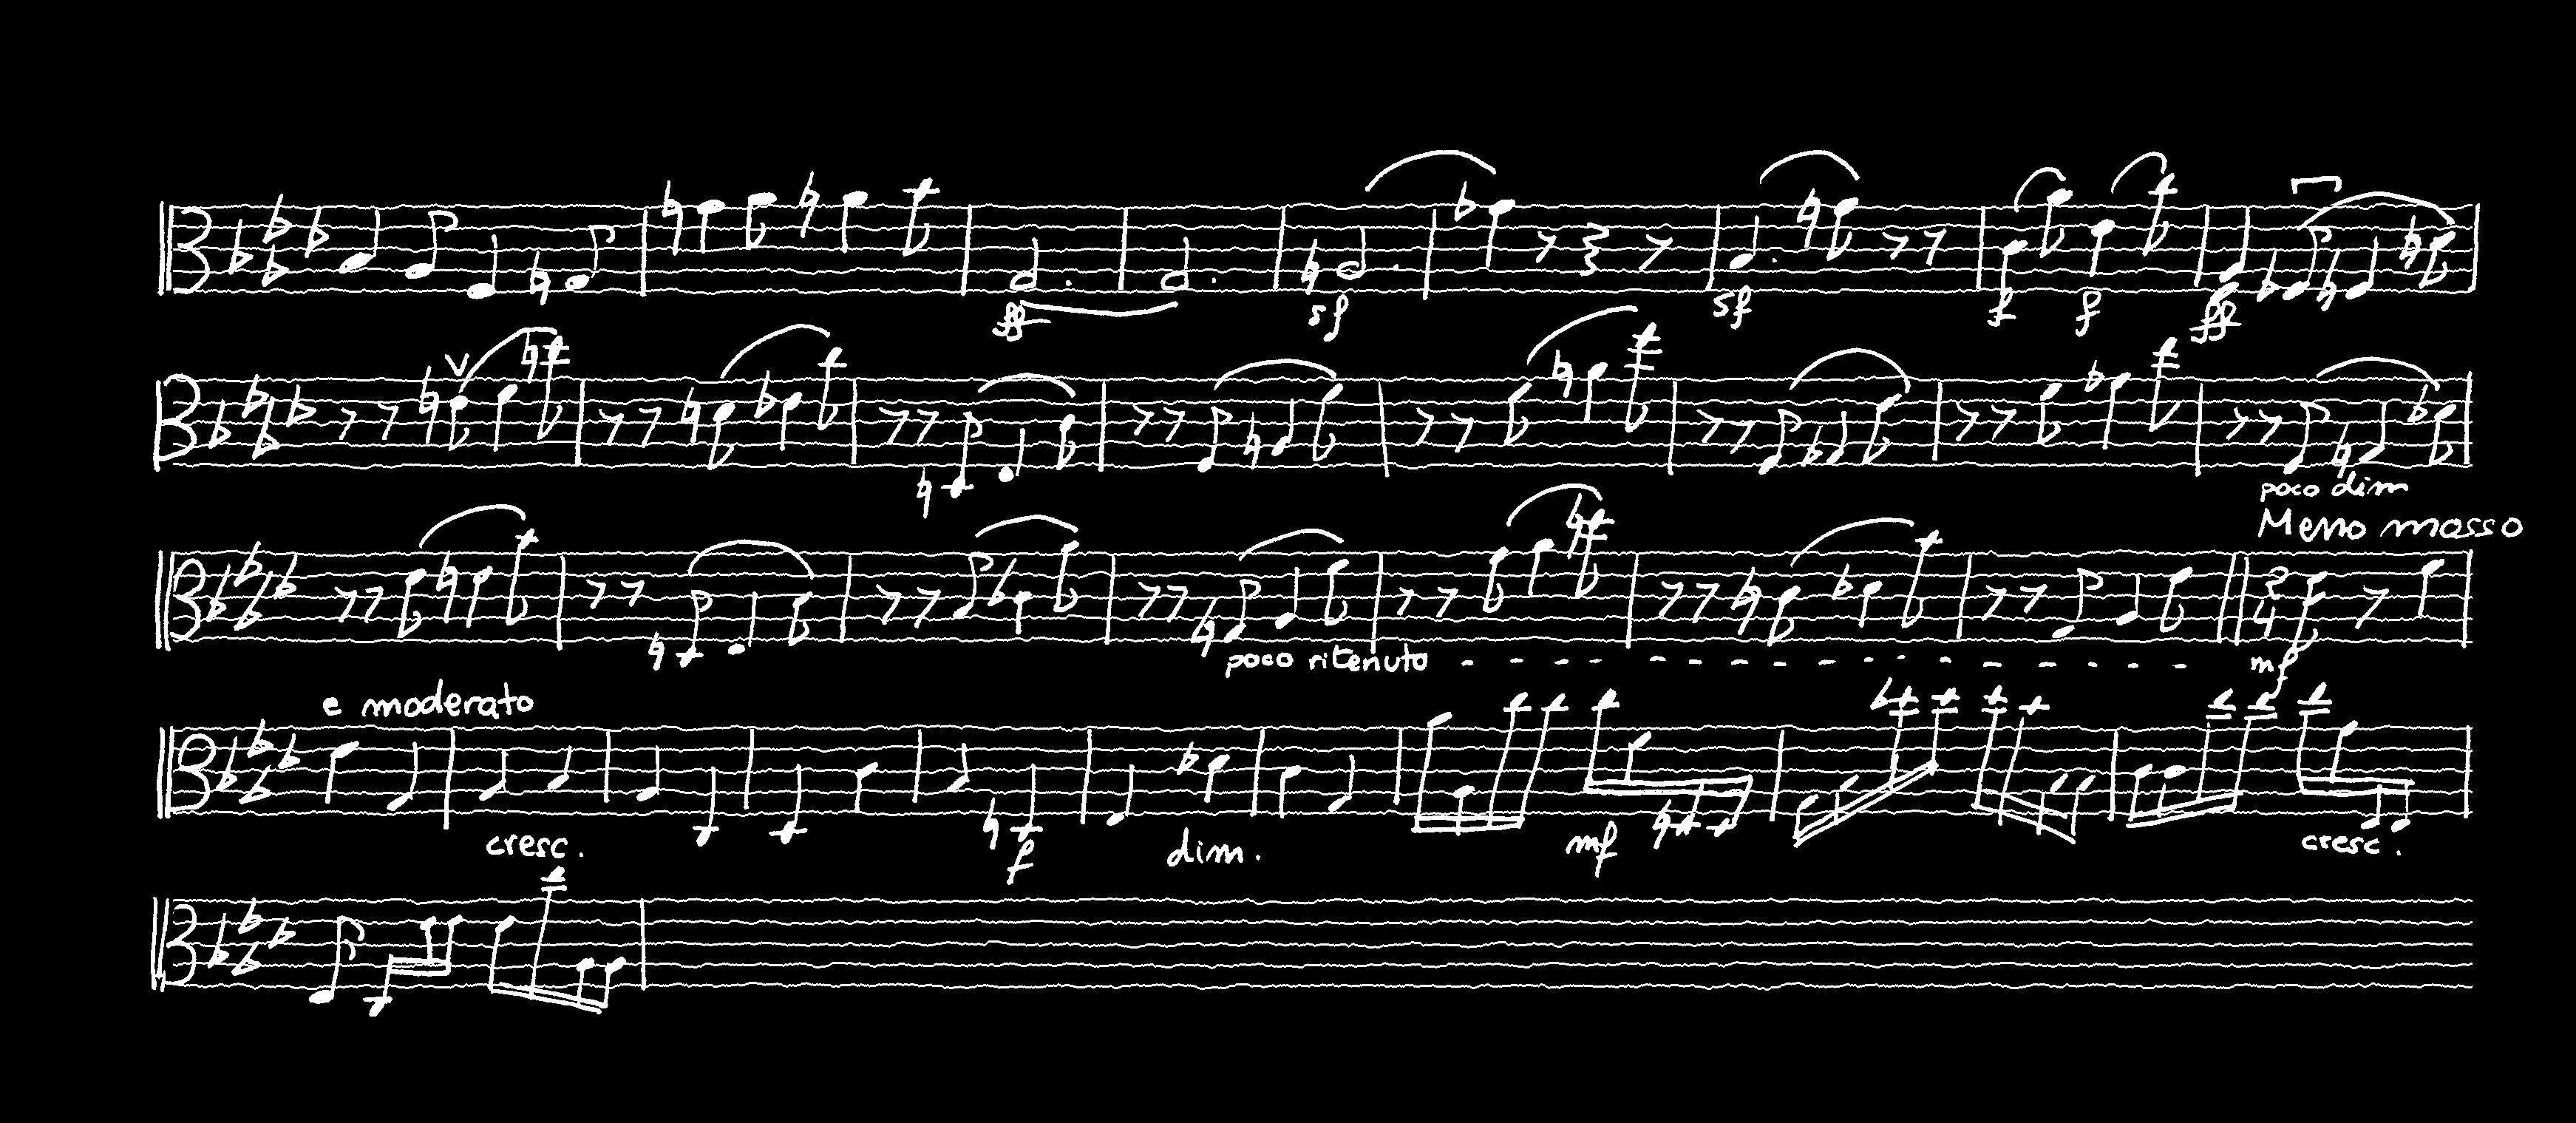 ff sf sf f f ff
poco dim
Meno mosso
2
4
poco ritenuto - - - - - - - - - - - - - - - - - - mf
e moderato
cresc. f dim. mf cresc.